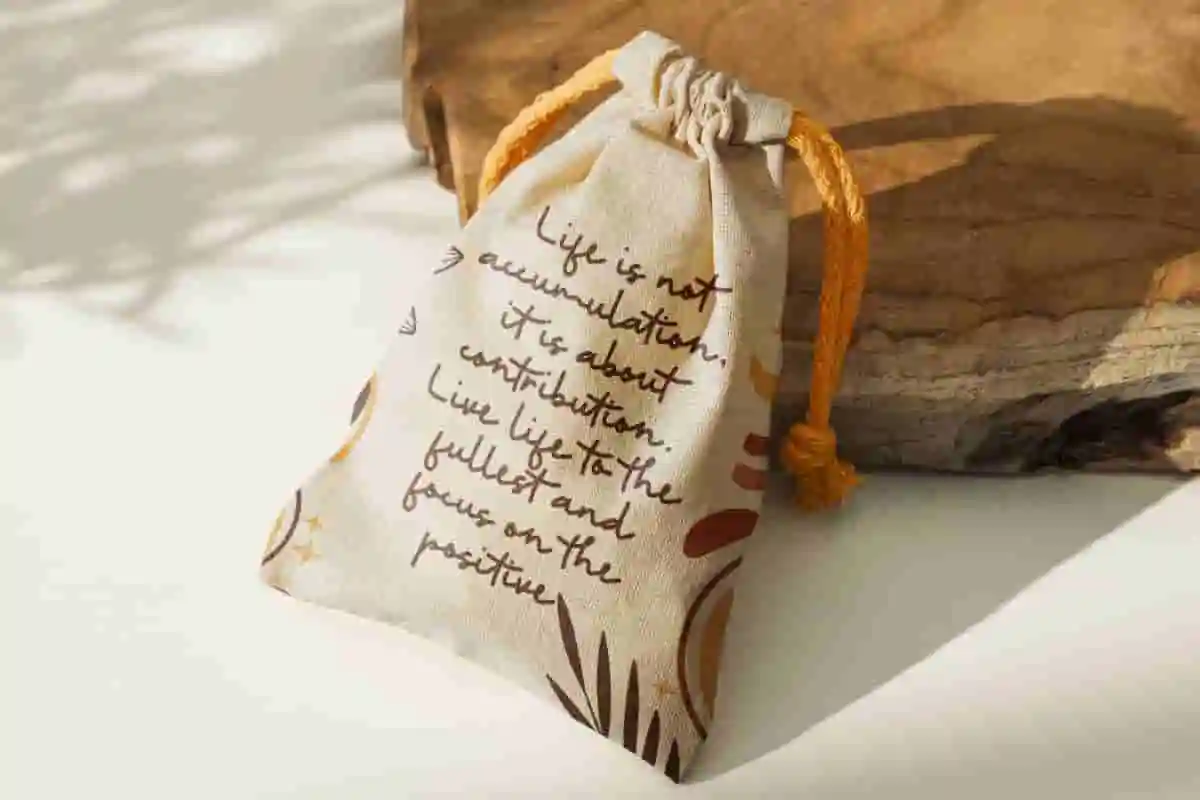 Life is not
accumulation.
it is about
contribution.
Live life to the
fullest and
focus on the
positive